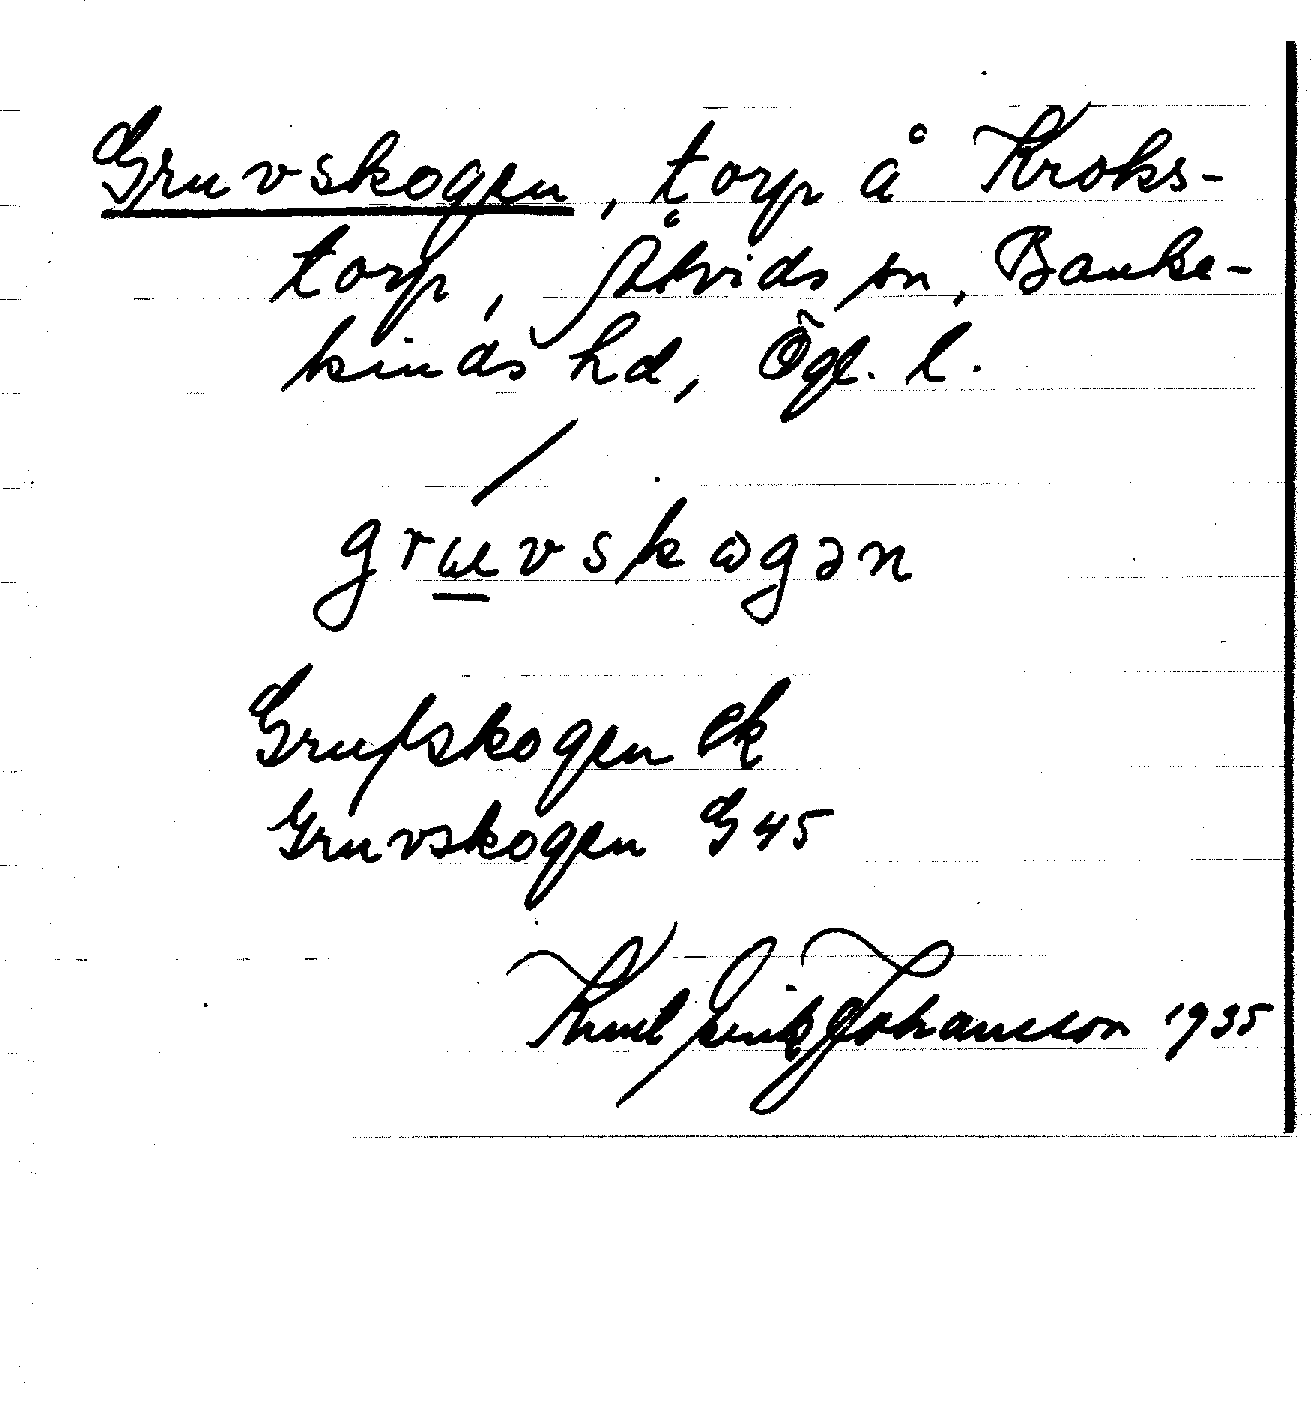 Gruvskogen, torp å Kroks-
torp, Åtvids sn, Banke-
kinds hd, Ögl. l.
grɯvskɷgən
Grufskogen Ek
Gruvskogen G 45
Johansson 1935